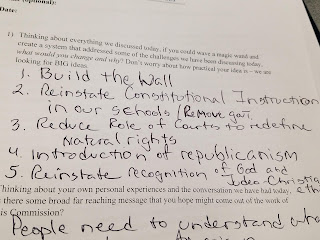 (optional):
Date:
1) Thinking about everything we discussed today, if you could wave a magic wand and
create a system that addressed some of the challenges we have been discussing today,
what would you change and why? Don't worry about how practical your idea is – we are
looking for BIG ideas.
1. Build the Wall
2. Reinstate Constitutional Instruction
in our schools (Remove gov't.
3. Reduce Role of Courts to redefine
Natural rights
4. Introduction of republicanism
5. Reinstate recognition of God and
Judeo-Christian
Thinking about your own personal experiences and the conversation we have had today,
there some broad far reaching message that you hope might come out of the work of
is Commission?
People need to understand